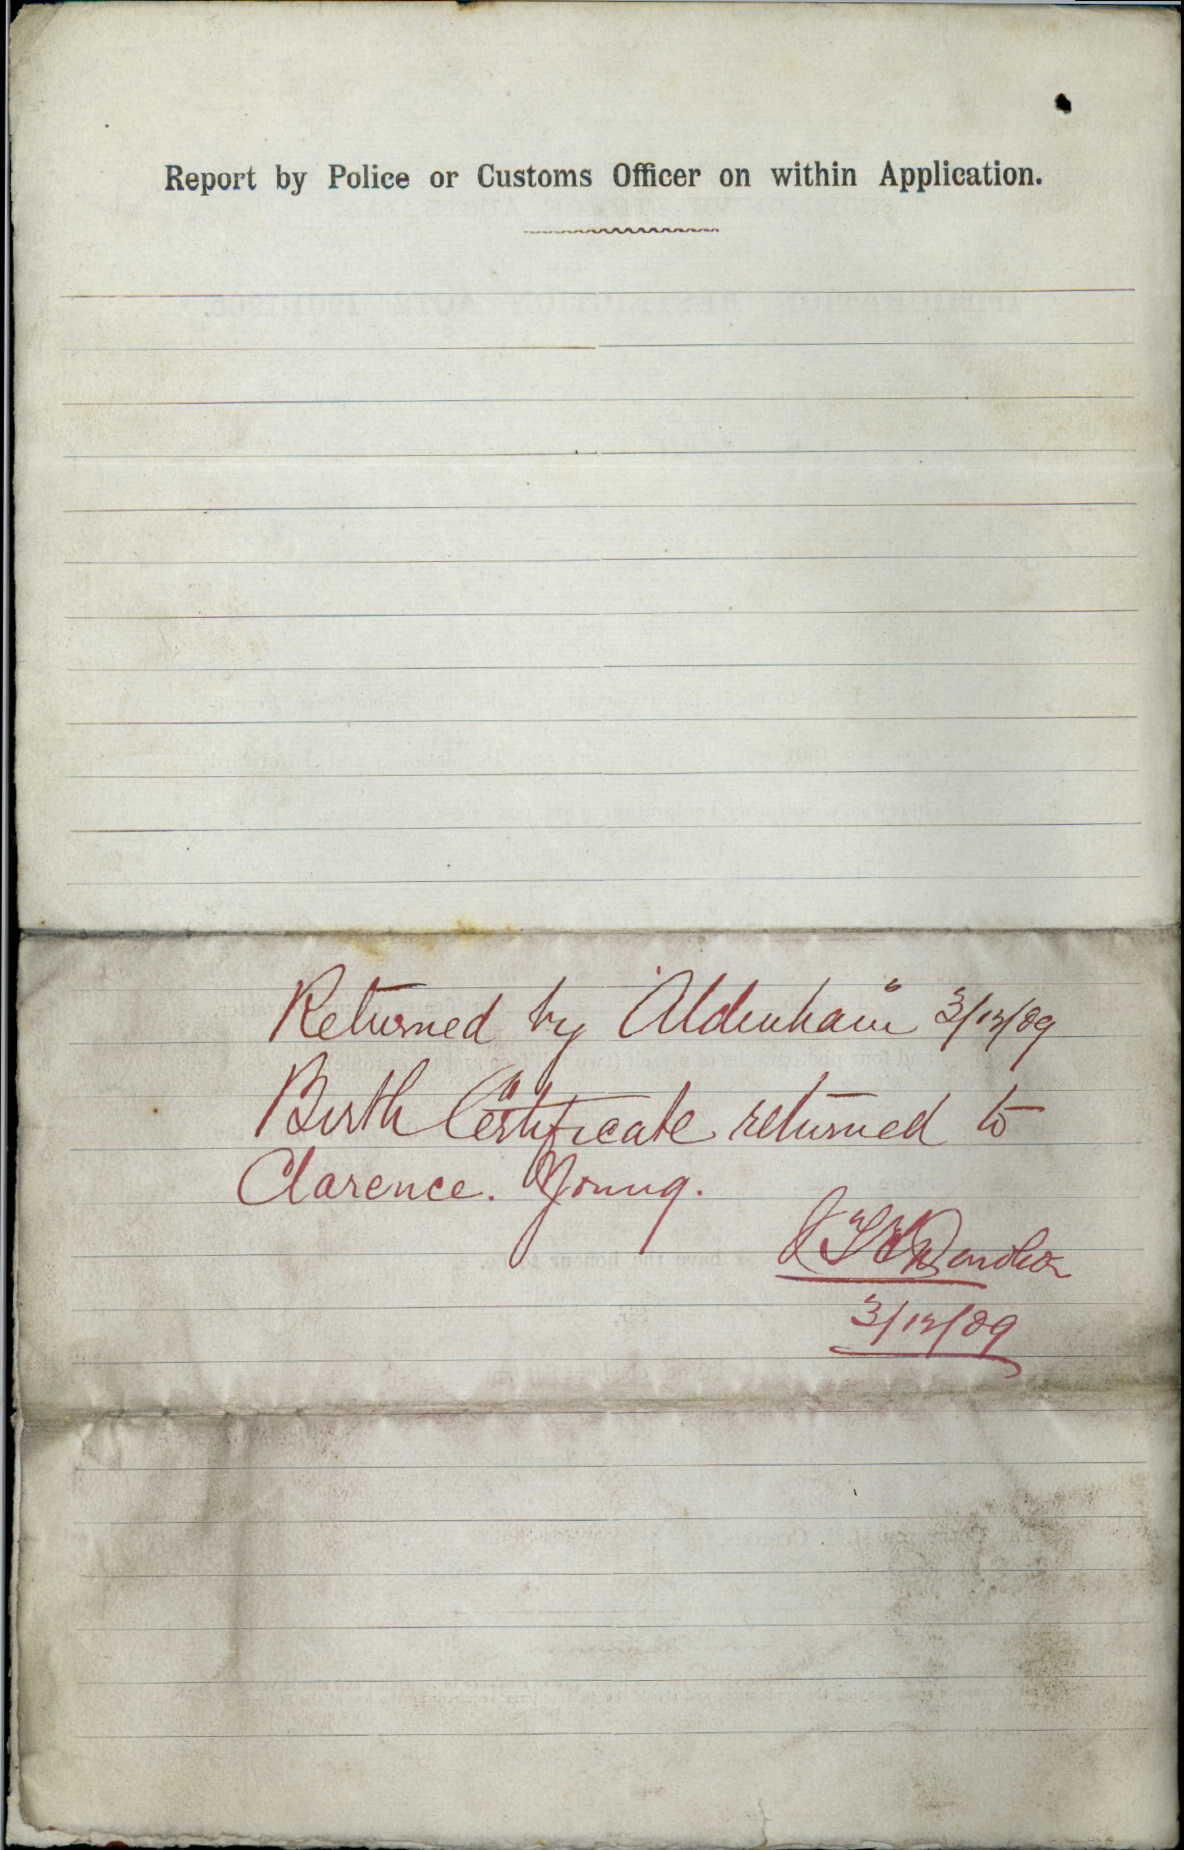 Report by Police or Customs Officer on within Application.
Returned by "Aldenham" 3/12/09
Birth Certificate returned to
Clarence. Young.
3/12/09